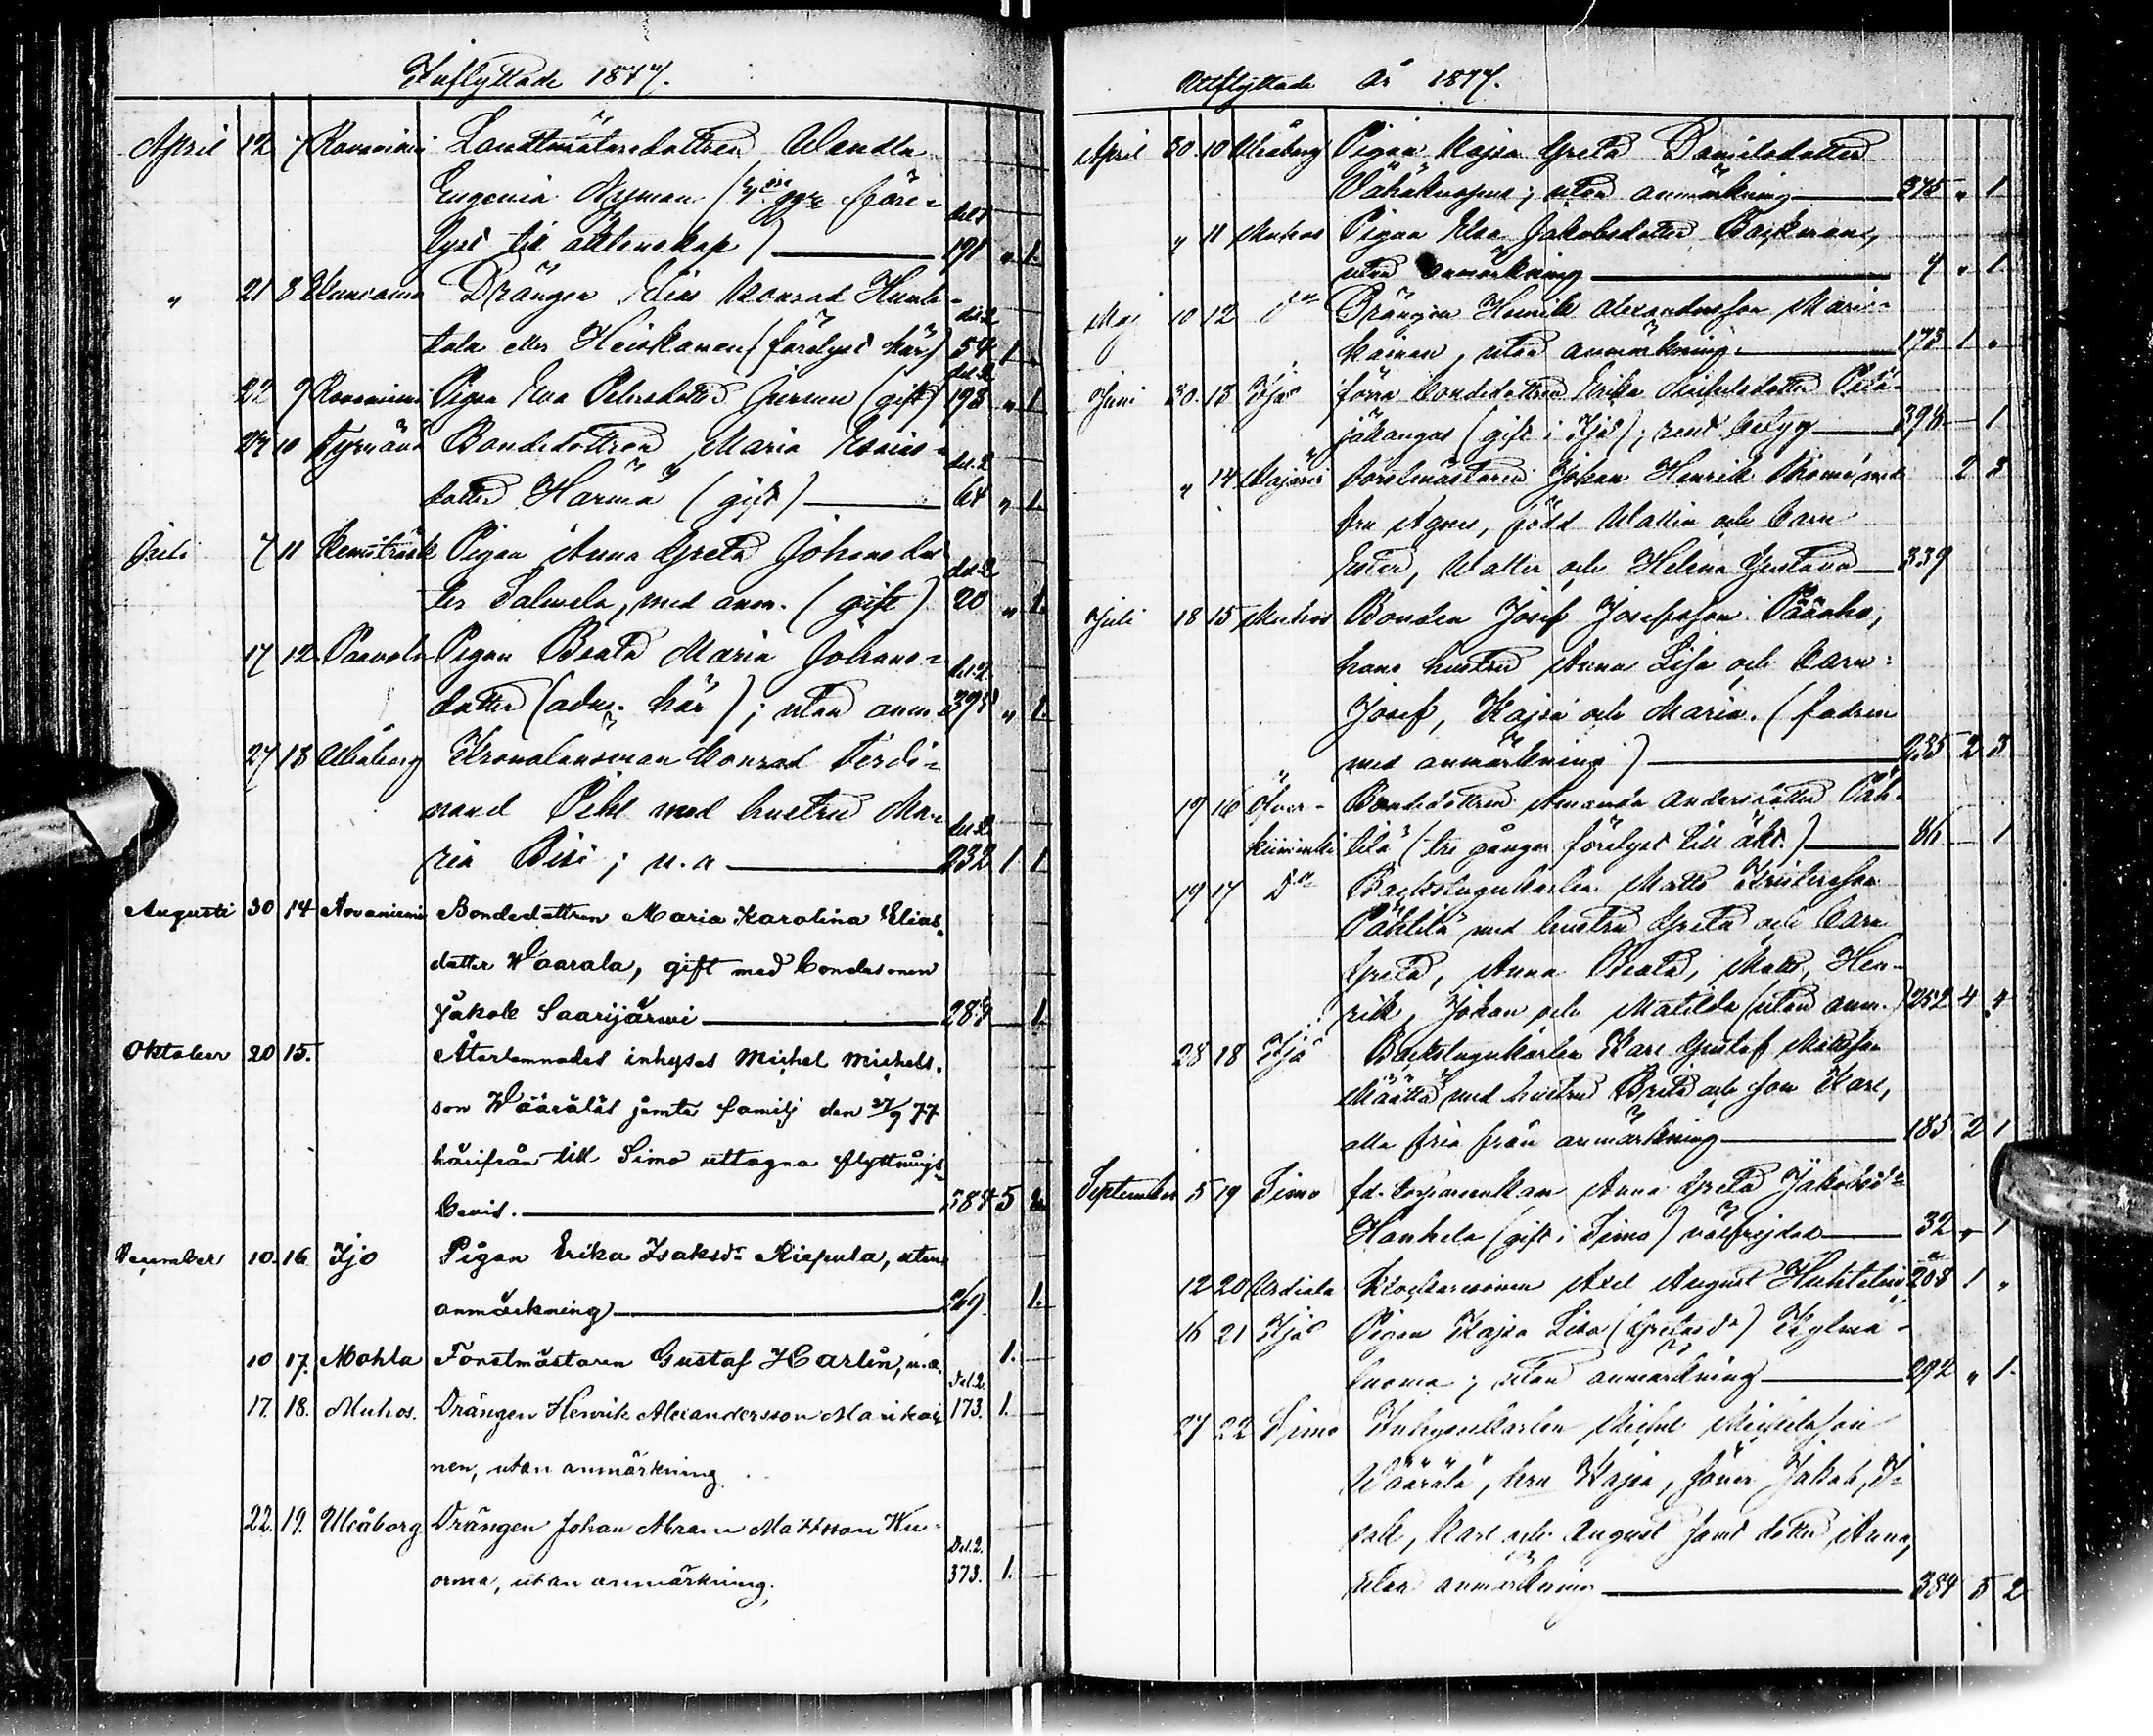 Inflyttade 1877.
April 12 7 Rovaniemi Landtmätaredottren Wendla
Eugenia Nyman ( ggr före-
del 1
lyst till äktenskap) 191 " 1.
" 21 8 Drängen Elias Konrad Hunt-
del 2
tala eller Heiskanen (förelyst här) 54 1 "
del 2
22 9 Rovaniemi Pigan Eva Petersdotter (gift) 193 " 1
27 10 Tyrnävä Bondedottren Maria Esaias-
del 2
dotter Harmä (gift) 64 " 1.
Juli 7 11 Kemiträsk Pigan Anna Greta Johans dot
del 2
ter Salmela, med anm. (gift) 20 " 1.
17 12 Paavola Pigan Beata Maria Johans-
del 2
dotter (adm. här); utan anm. 395 " 1.
27 13 Uleåborg Kronolänsman Konrad Ferdi-
nand Pihl med hustru Ma-
del 2
ria Bisi; u.a 232 1 1
Augusti 30 14 Rovaniemi Bondedottren Maria Karolina Elias-
dotter Waarala, gift med bondesonen
Jakob Saarijärwi 287 1.
Oktober 20 15. Återlemnades inhyses Michel Michels-
son Wääräläs jemte familj den 27/9 77
härifrån till Simo uttagna flyttnings-
bevis. 384 5 2.
December 10. 16. Ijo Pigan Erika Isaksdr Kiepula, utan
anmärkning 269. 1.
10 17. Mohla Forstmästaren Gustaf Harlin, u.a. 1.
Del. 2.
17. 18. Muhos. Drängen Henrik Alexandersson Marikai- 173. 1.
nen, utan anmärkning.
22. 19. Uleåborg Drängen Johan Abram Mattsson Ku-
Del. 2.
orma, utan anmärkning. 373. 1.
Utflyttade År 1877.
April 30 10 Uleåborg Pigan Kajsa Greta Danielsdotter
Vähäkuopus; utan anmärkning 375 " 1
" 11 Muhos Pigan Elsa Jakobsdotter Backman,
utan anmärkning 4 " 1
Maj 10 12 do Drängen Henrik Alexandersson Mari-
kainen, utan anmärkning. 173 1 "
Juni 30. 13 Ijo förra bondedottren Erika Michelsdotter
jäkangas (gift i Ijo); rent betyg 398 1
" 14 Forstmästaren Johan Henrik med 2 3
fru Agnes, född Wallin och barn
Ester, Walter och Helena Gustava 339
Juli 18 15 Muhos Bonden Josef Josefsson Pääaho,
hans hustru Anna Lisa och barn:
Josef, Kajsa och Maria. (fadren
med anmärkning) 235 2 3
19 16 Öfver- Bondedottren Amanda Andersdotter Päh-
kiiminki tilä (tre gånger förelyst till äkt.) 86 1
19 17 Do Backstugukarlen Matts Kristersson
Pähtilä med hustru Greta och barn
Greta, Anna Beata, Matts, Hen-
rik, Johan och Matilda (utan anm.) 252 4 4
28 18 Ijo Backstugukarlen Karl Gustaf Mattsson
Määttä med hustru Brita och son Karl,
alla fria från anmärkning 185 2 1
September 5 19 Simo fd. torparenkan Anna Greta Jakobsdr
Hanhela (gift i Simo) välfrejdad 32 " 1
12 20 Urdiala Klockaresonen Axel August Huhtelin 208 1 "
16 21 Ijo Pigan Kajsa Lisa (Gretasdr) Kylmä-
luoma; utan anmärkning 292 " 1.
27 22 Simo Inhysenkarlen Michel Michelsson
Wäärälä, hru Kajsa, söner Jakob, I-
sak, Karl och August samt dotter Anna,
utan anmärkning 384 5 2